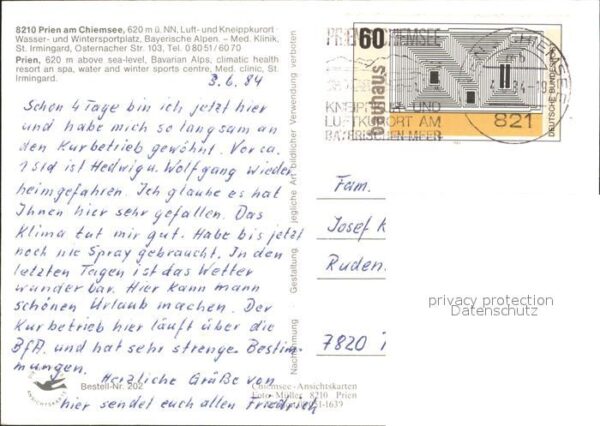 8210 Prien am Chiemsee, 620 m ü. NN, Luft- und Kneippkurort -
Wasser- und Wintersportplatz, Bayerische Alpen. – Med. Klinik,
St. Irmingard, Osternacher Str. 103, Tel. 0 80 51 / 60 70
Prien, 620 m above sea-level, Bavarian Alps, climatic health
resort an spa, water and winter sports centre, Med. clinic, St.
Irmingard.
3.6.84
Schon 4 Tage bin ich jetzt hier
und habe mich so langsam an
den Kurbetrieb gewöhnt. Vor ca.
1 Std ist Hedwig u. Wolfgang wieder
heimgefahren. Ich glaube es hat
Ihnen hier sehr gefallen. Das
Klima tut mir gut. Habe bis jetzt
noch nie Spray gebraucht. In den
letzten Tagen ist das Wetter
wunderbar. Hier kann mann
schönen Urlaub machen. Der
Kurbetrieb hier läuft über die
BfA. und hat sehr strenge Bestim-
mungen.
Herzliche Grüße von
hier sendet euch allen Friedrich
Bestell-Nr. 202
Chiemsee-Ansichtskarten
Foto-Müller 8210 Prien
Nachahmung Gestaltung jegliche Art bildlicher Verwendung verboten
PRIEN CHIEMSEE
KNEIPP UND
LUFTKURORT AM
BAYERISCHEN MEER
60
bauhaus
DEUTSCHE BUNDESPOST
821
Fam.
Josef K
Ruden
7820
privacy protection
Datenschutz